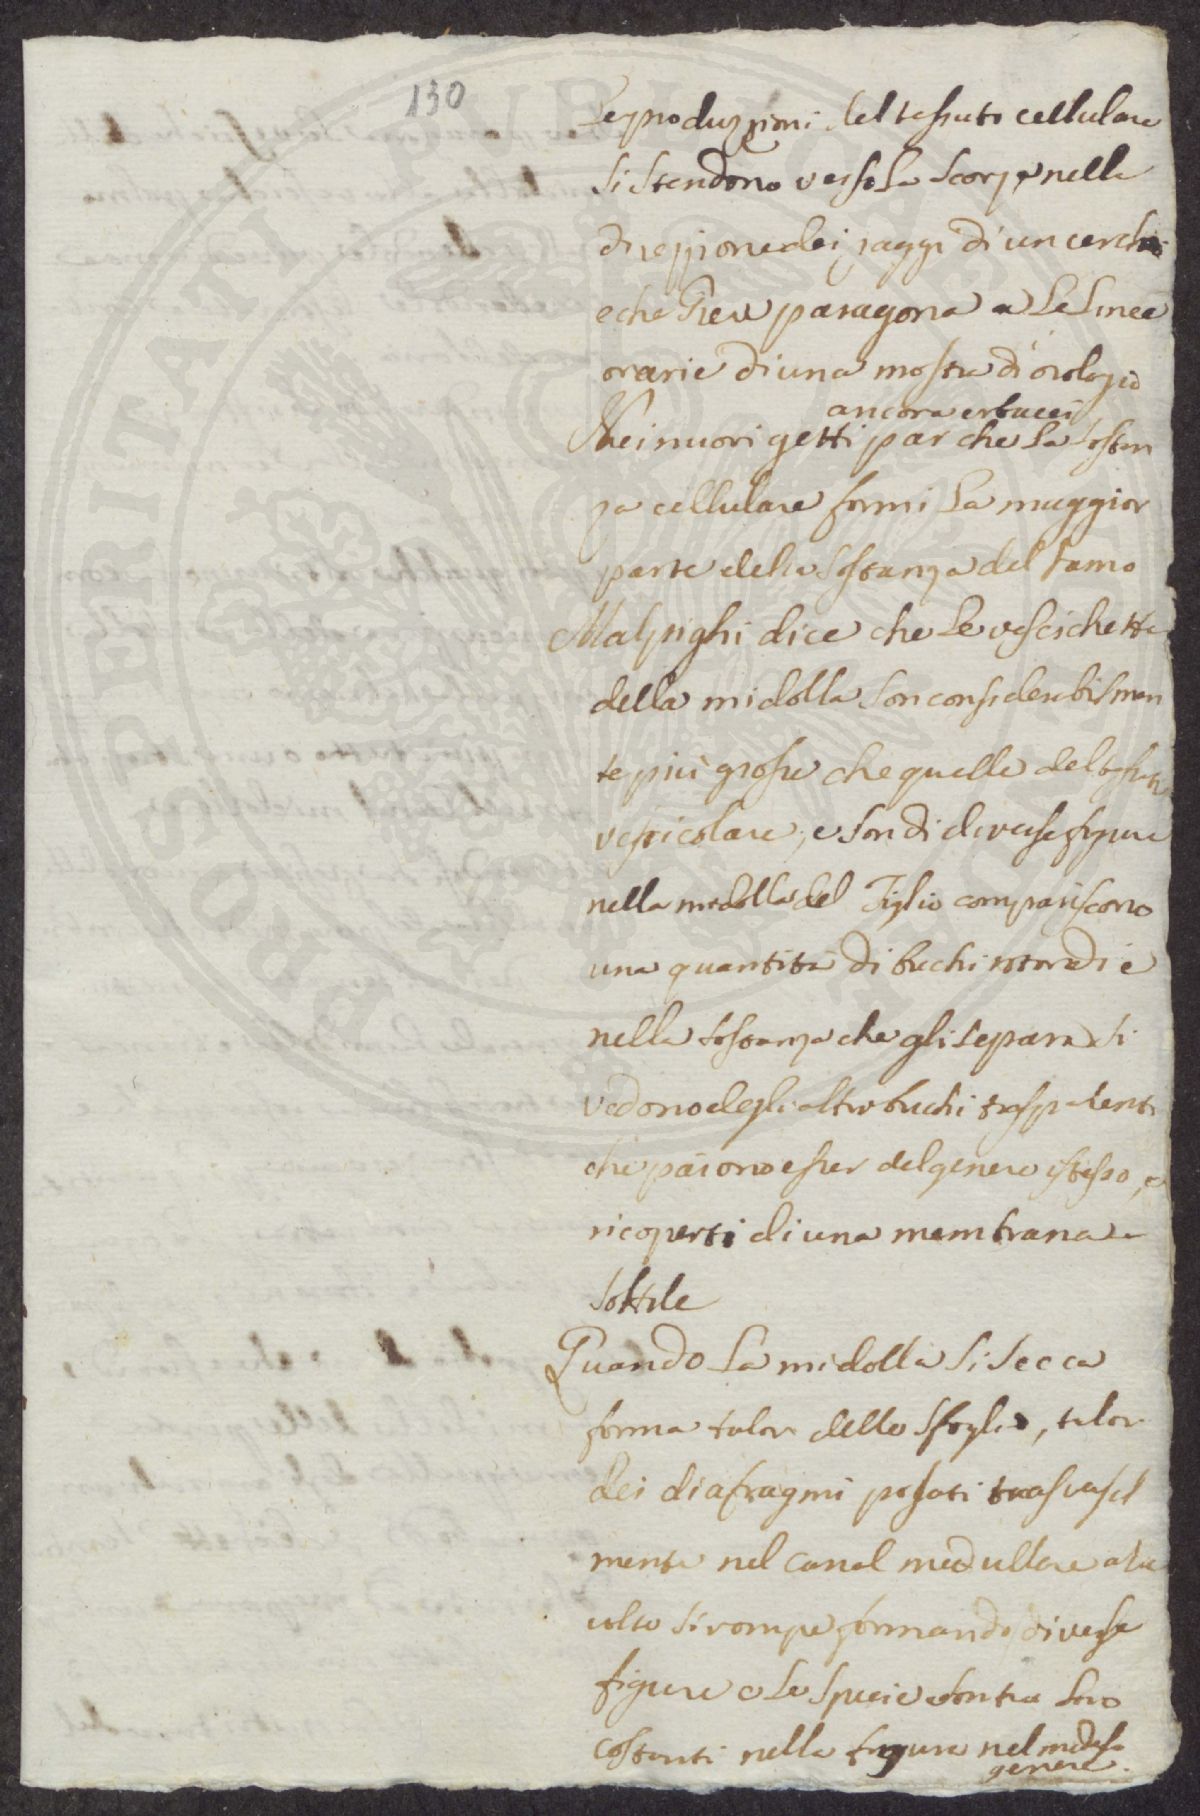 130
Le produzzioni del tessuto cellulare
si stendono verso la scorza nella
direzzione dei raggi d'un cerchio
e che Greu paragona a le linee
orarie di una mostra d'orologio
ancora erbacei
Nei nuovi getti par che la sostan
za cellulare formi la maggior
parte della sostanza del ramo
Malpighi dice che le vescichette
della midolla son considerabilmen
te più grosse che quelle del tessuto
vessicolare, e son di diverse figure
nella midolla del Tiglio compariscono
una quantità di buchi rotondi e
nella sostanza che gli separa si
vedono degli altri buchi trasparenti
che paiono esser del genere istesso, e
ricoperti di una membrana
sottile
Quando la midolla si secca
forma talor delle sfoglie, talor
dei diafragmi posati trasversal
mente nel canal medullare
volte si rompe formando diverse
figure e le specie contra loro
costanti nella figura nel medesimo
genere.
PROSPERITATI PUBLICAE